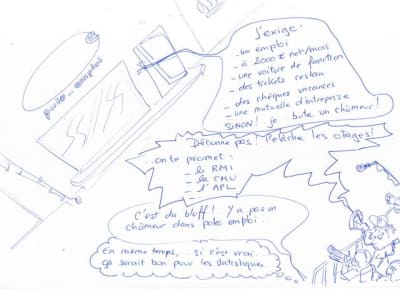 pôle emploi
J'exige:
- un emploi
- à 2000 € net/mois
- une voiture de fonction
- des tickets restau
- des chéques vacances
- une mutuelle d'entreprise
SINON! je bute un chômeur!
Déconne pas! Relâche les otages!
..on te promet:
- le RMI
- la CMU
- l'APL
C'est du bluff! Y a pas un
chômeur dans pole emploi..
En même temps, si c'est vrai
ça serait bon pour les statistiques